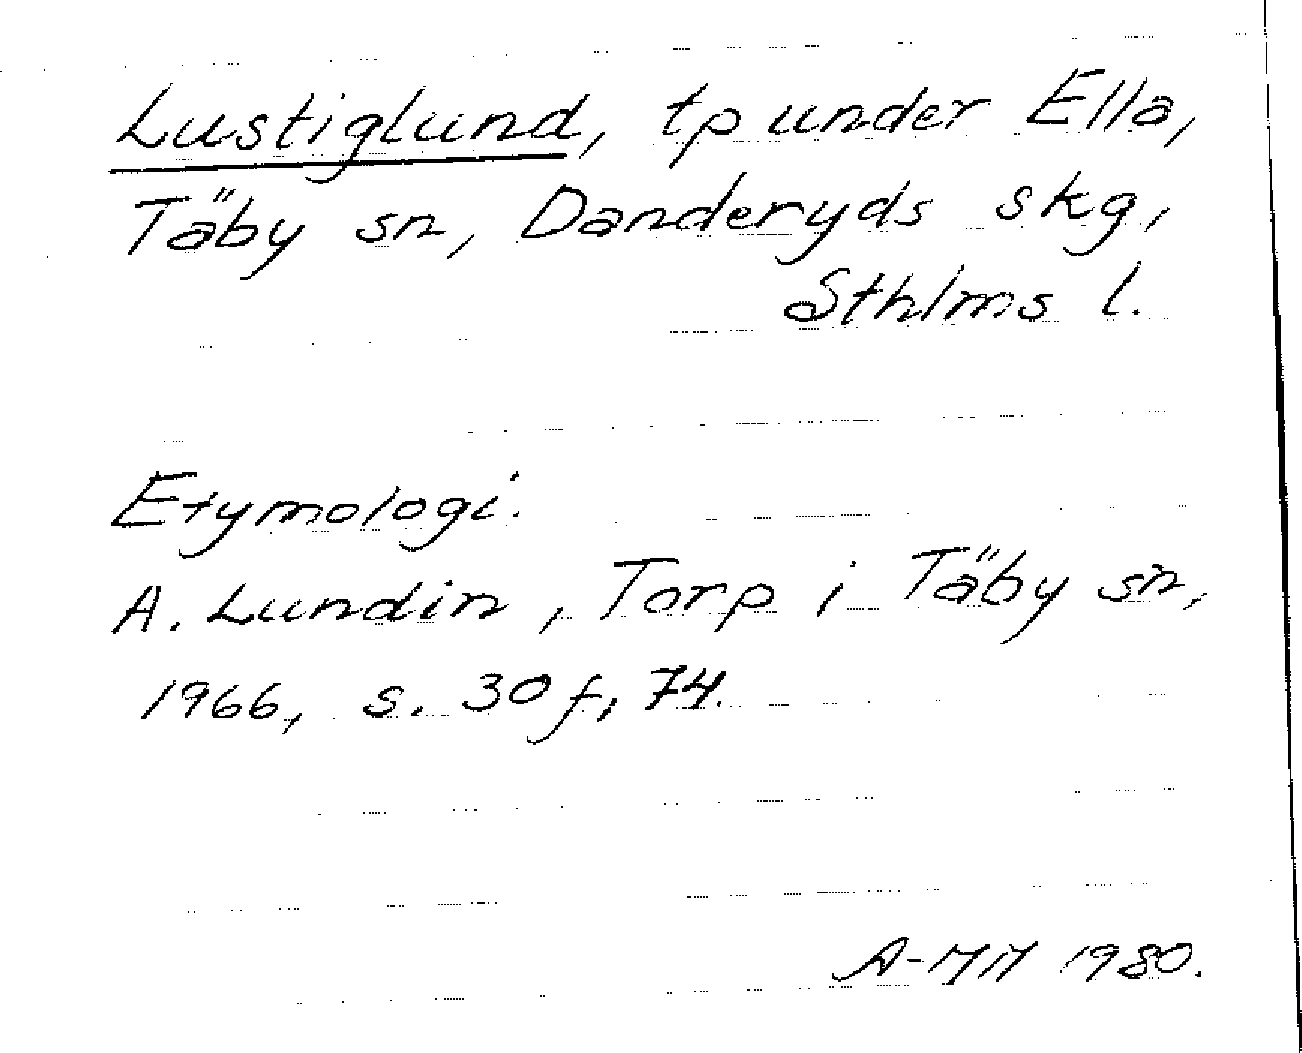 Lustiglund, tp under Ella,
Täby sn, Danderyds skg,
Sthlms l.
Etymologi.
A. Lundin, Torp i Täby sn,
1966, s. 30 f, 74.
A-MM 1980.